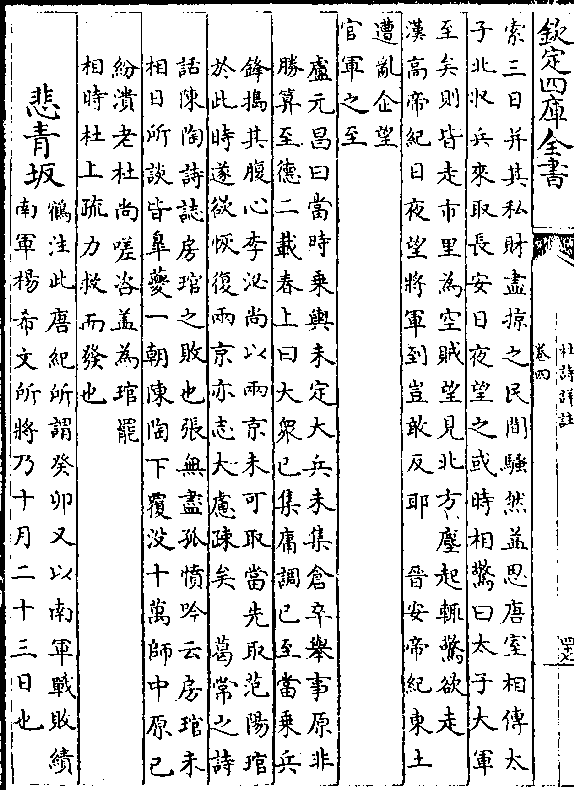 欽定四庫全書
杜詩詳註
卷四
索三日并其私財盡掠之民間騷然益思唐室相傳太
子北收兵來取長安日夜望之或時相驚曰太子大軍
至矣則皆走市里為空賊望見北方塵起輒驚欲走
漢高帝紀日夜望將軍到豈敢反耶 晉安帝紀東土
遭亂企望
官軍之至
盧元昌曰當時乘輿未定大兵未集倉卒舉事原非
勝算至德二載春上曰大衆已集庸調已至當乘兵
鋒搗其腹心李泌尚以兩京未可取當先取范陽琯
於此時遂欲恢復兩京亦志大慮疎矣 葛常之詩
話陳陶詩誌房琯之敗也張無盡孤憤吟云房琯未
相日所談皆臯夔一朝陳陶下覆没十萬師中原已
紛潰老杜尚嗟咨盖為琯罷
相時杜上疏力救而發也
悲青坂
鶴注此唐紀所謂癸卯又以南軍戰敗績
南軍楊希文所將乃十月二十三日也